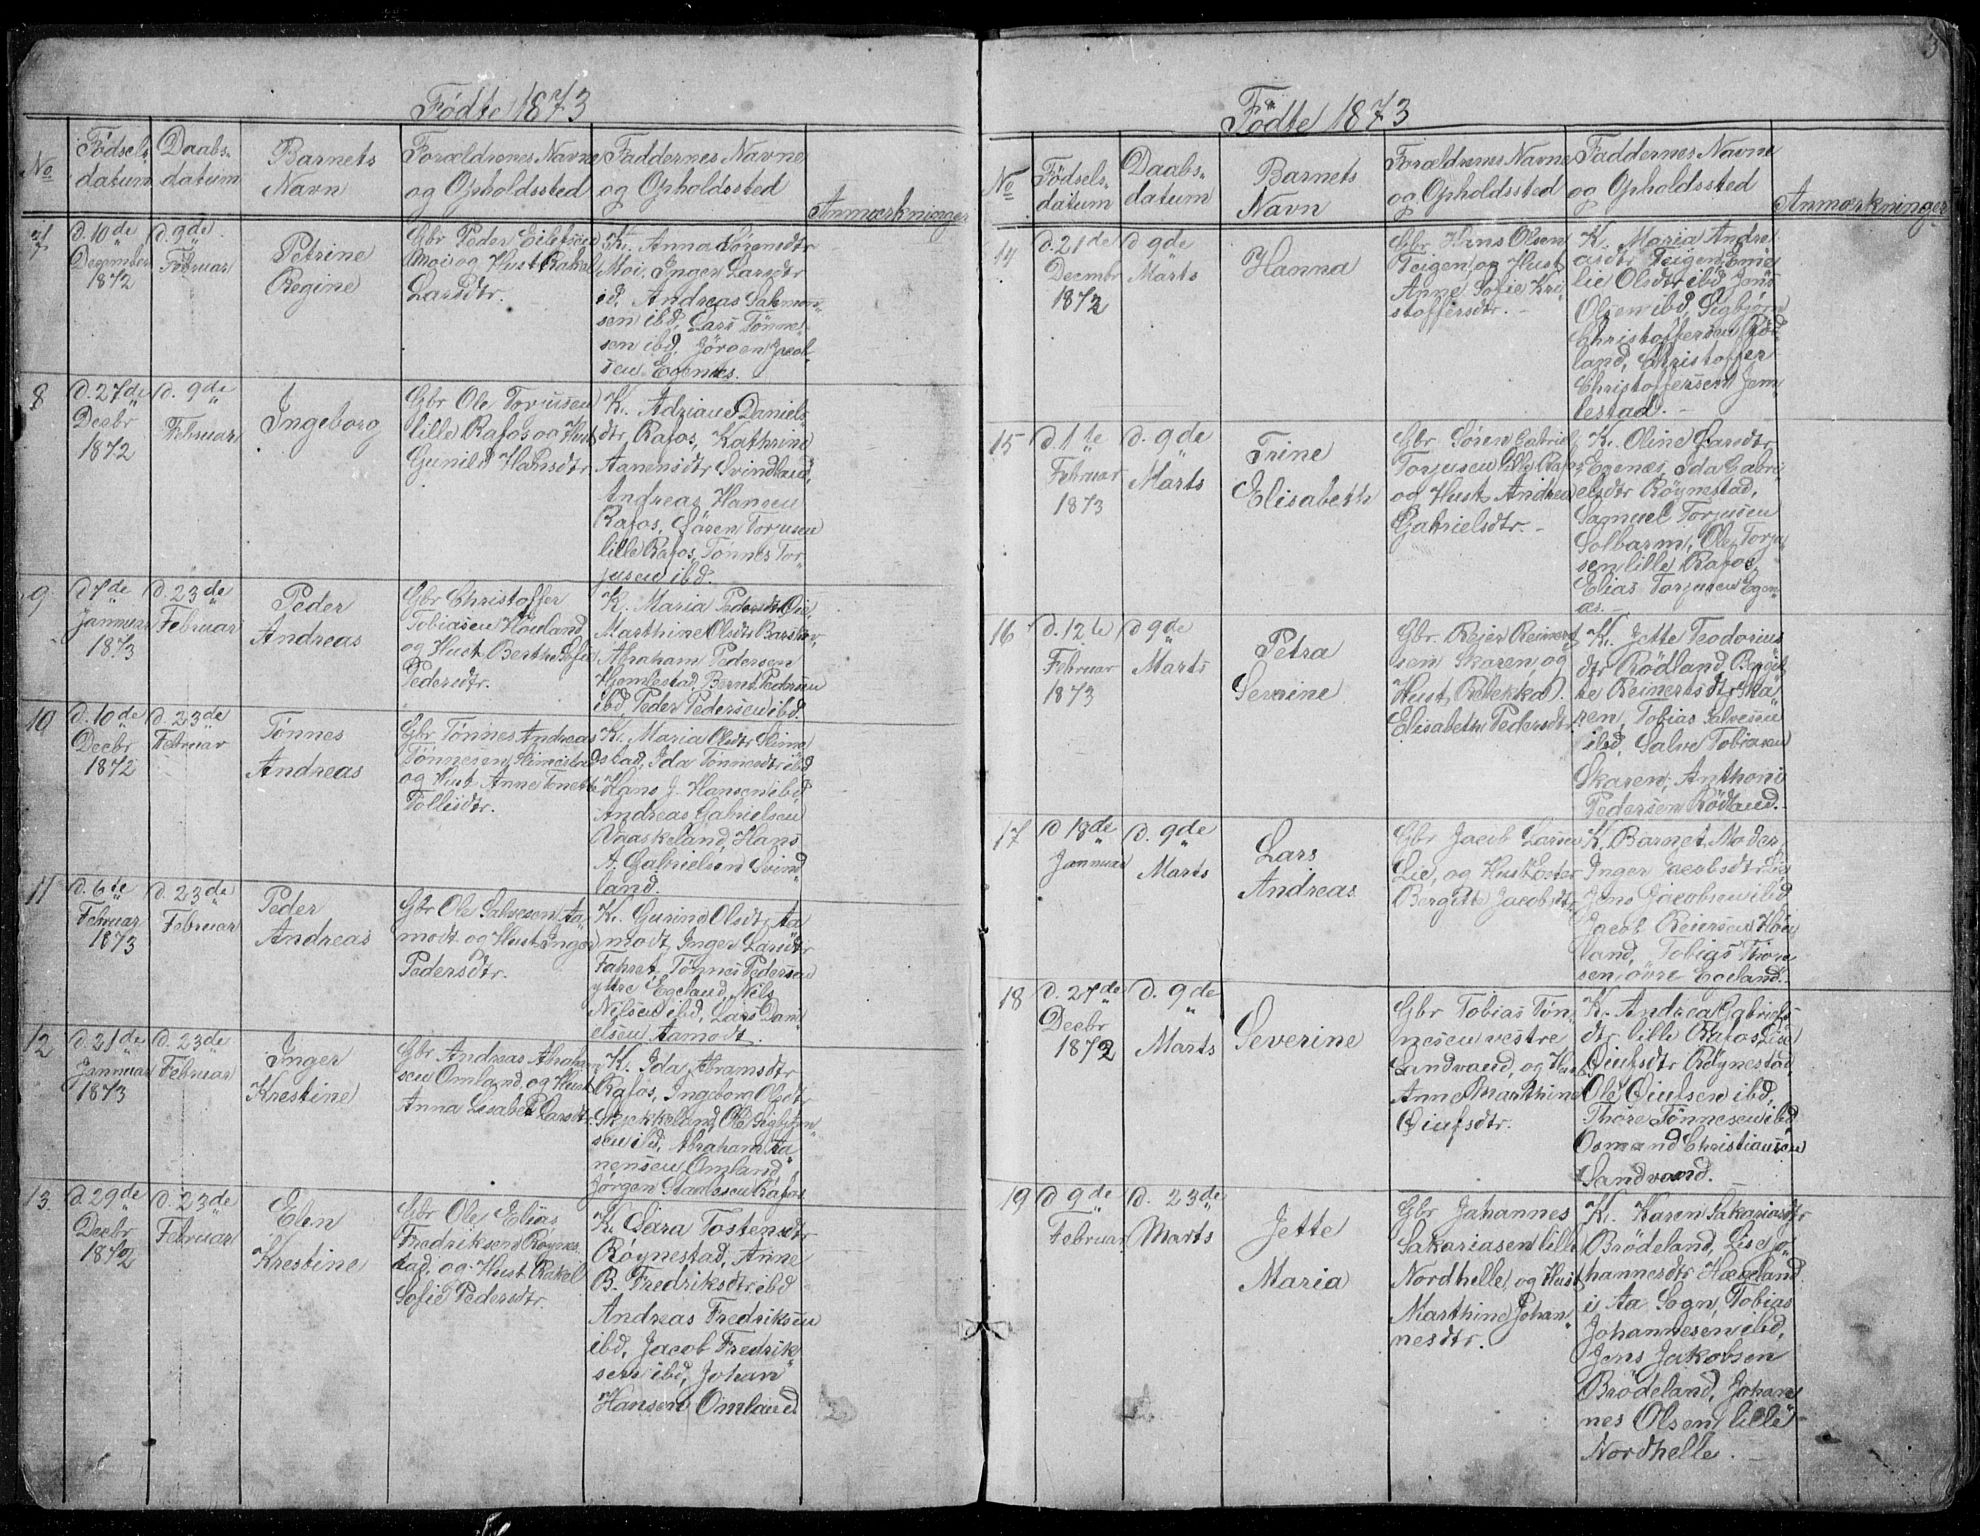 Födte 1873
No
Fødsels-
datum
Daabs-
datum
Barnets
Navn
Forældrenes Navne
og Opholdssted
Faddernes Navne
og Opholdssted
Anmærkninger
7
d. 10de
December
1872
d. 9de
Februar
Petrine
Regine
Gbr Peder Eilefsen
Moi og Hust Rakel
Larsdtr.
K. Anna Sørensdtr
Moi, Inger Larsdtr
id. Andreas Salmon-
sen ibd, Lars Tønne-
sen ibd. Jörgen Jacob-
sen Egenæs.
8
d. 27de
Decbr
1872
d. 9de
Februar
Ingeborg
Gbr Ole Torjusen
lille Rafos og Hust
Gunild Hansdtr
K. Adriane Daniels-
dtr, Rafos, Kathrine
Aanensdtr Svindland,
Andreas Hansen
Rafos, Søren Torjusen
lille Rafos, Tønnes Tor-
jusen ibd.
9
d 7de
Januar
1873
d. 23de
Februar
Peder
Andreas
Gbr Christoffer
Tobiasen Höuland,
og Hust Berthe Sofie
Pedersdtr.
K. Maria Pedersdtr Oie,
Marthine Olsdtr
Abraham Pedersen
Hjemlestad, Bernt Pedersen
ibd Peder Pedersen ibd.
10
d. 10de
Decbr
1872
d. 23de
Februar
Tønnes
Andreas
Gbr Tønnes Andreas
Tönnesen Slimestad
og Hust. Anne Tonette
Tollisdtr.
K. Maria Olsdtr Slime
stad, Ida Tönnesdtr ibd
Hans J. Hansen ibd,
Andreas Gabrielsen
Vaaskeland, Hans
A. Gabrielsen Svind
land.
11
d. 6te
Februar
1873
d. 23de
Februar
Peder
Andreas
Gbr Ole Salvesen Aa-
modt og Hust Inger
Pedersdtr.
K. Gurine Olsdtr Aa
modt, Inger Larsdtr
Fahret, Tönnes Pedersen
ytre Egeland, Nils
Nilsen ibd, Lars Dani
elsen Aamodt.
12
d. 21de
Januar
1873
d. 23de
Februar
Inger
Krestine
Gbr Andreas Abraham
sen Omland, og Hust
Anna Lisabet Larsdtr.
K. Ida Abramsdtr
Rafos, Ingeborg Olsdtr
Skjekkeland, Ole Sigbjörn-
sen ibd, Abraham Aa
nensen Omland,
Jörgen Rafos.
13
d. 29de
Decbr
1872
d. 23de
Februar
Elen
Krestine
Gbr Ole Elias
Fredriksen Röynes
tad, og Hust Rakel
Sofie Pedersdtr.
K. Sara Tostensdtr
Röynestad, Anne
B. Fredriksdtr ibd
Andreas Fredriksen
ibd, Jacob Fredrik
sen ibd, Johan
Hansen Omland
3
Födte 1873
No
Födsels-
datum
Daabs-
datum
Barnets
Navn
Forældrenes Navne
og Opholdssted
Faddernes Navne
og Opholdssted
Anmærkninger
14
d. 21de
Decmbr
1872
d 9de
Marts
Hanna
Gbr Hans Olsen
Teigen, og Hust
Anne Sofie Kri
stoffersdtr.
K. Maria Andre
asdtr Teigen, Eme
lie Olsdtr ibd Jens
Olsen ibd, Sigbjörn
Christoffersen Röd-
land, Christoffer
Christoffersen Jem
lestad.
15
d 1te
Februar
1873
d. 9de
Marts
Trine
Elisabeth
Gbr Sören Gabriel
Torjusen lille Rafos
og Hust Andrea
Gabrielsdtr.
K. Oline Larsdtr
Egenæs, Ida Gabri
elsdtr Röynestad,
Samuel Torjusen
Solbarm, Ole Torju
sen lille Rafos,
Elias Torjusen Egen
æs.
16
d. 12te
Februar
1873
d 9de
Marts
Petra
Severine
Gbr. Reier Reinert
sen Skaren og
Hust, Rebekka
Elisabeth Pedersdtr.
K. Jette Teodorius
dtr Rödland, Bergit
te Reinertsdtr Ska
ren, Tobias Salvesen
ibd, Salve Tobiasen
Skaren, Anthoni
Pedersen Rödland.
17
d 18de
Januar
d. 9de
Marts
Lars
Andreas
Gbr Jacob Larsen
Lie, og Hust Ester
Bergitte Jacobsdtr
K. Barnet Moder,
Inger Jacobsdtr Lie
Jens Jacobsen ibd
Jacob Reiersen Höu
land, Tobias Thor
sen övre Egeland.
18
d. 27de
Decbr
1872
d. 9de
Marts
Severine
Gbr Tobias Tön-
nesen vestre
Sandvand, og Hust
Anne Marthine
Oiufsdtr.
K. Andrea Gabriels
dtr lille Rafos, Lise
Oiufsdtr Röynestad,
Ole Oiulsen ibd,
Thore Tönnesen ibd
Osmand Christiansen
Sandvand.
19
d 9de
Februar
d. 23de
Marts
Jette
Maria
Gbr Jahannes
Sakariasen lille
Nordhelle, og Hust
Marthine Johan-
nesdtr.
K. Karen Sakariasdtr
Brödeland, Lise Jo
hannesdtr Hægeland
i Aa Sogn, Tobias
Johannesen ibd,
Jens Jakobsen
Brödeland, Johan
nes Olsen lille
Nordhelle.